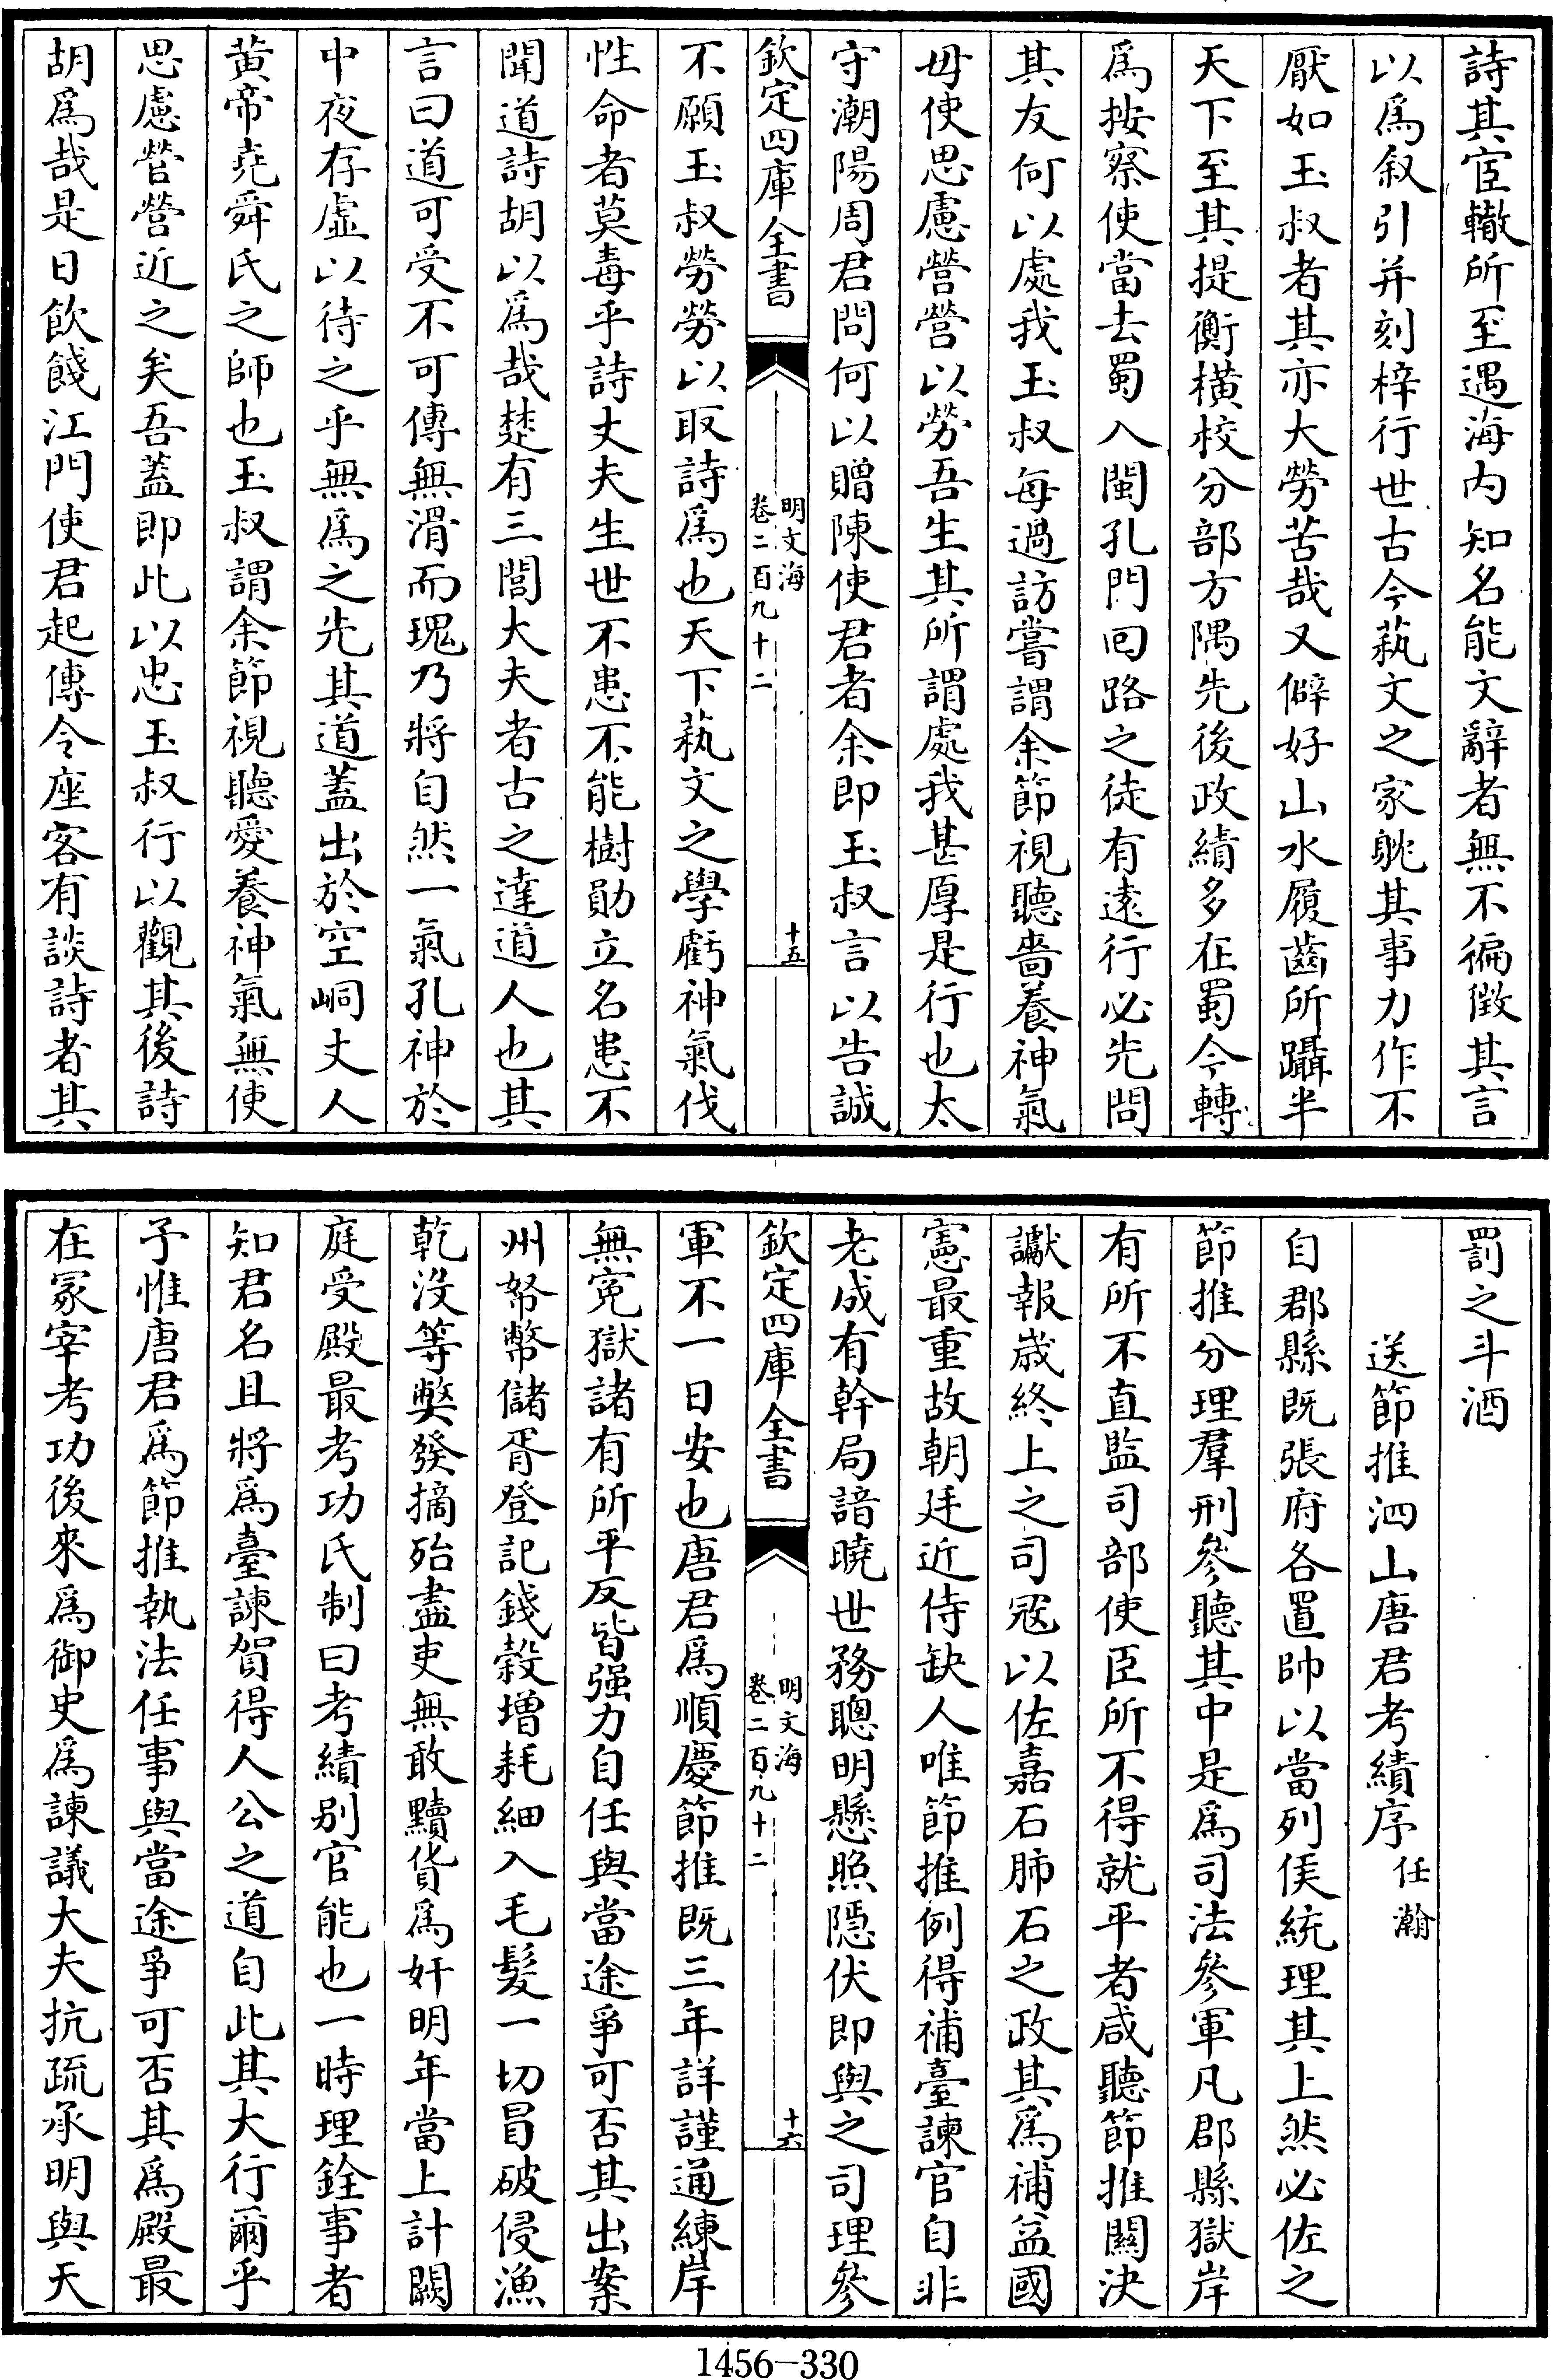 詩其宦轍所至遇海内知名能文辭者無不徧徴其言
以為叙引并刻梓行世古今蓺文之家眺其事力作不
厭如玉叔者其亦大勞苦哉又僻好山水履齒所躡半
天下至其提衡横校分部方隅先後政績多在蜀今轉
為按察使當去蜀入閩孔門回路之徒有逺行必先問
其友何以處我玉叔每過訪嘗謂余節視聽嗇養神氣
毋使思慮營營以勞吾生其所謂處我甚厚是行也太
守潮陽周君問何以贈陳使君者余即玉叔言以告誠
欽定四庫全書
明文海
卷二百九十二
十五
不願玉叔勞勞以取詩為也天下蓺文之學虧神氣伐
性命者莫毒乎詩丈夫生世不患不能樹勛立名患不
聞道詩胡以為哉楚有三閭大夫者古之達道人也其
言曰道可受不可傳無滑而瑰乃將自然一氣孔神於
中夜存虛以待之乎無為之先其道蓋出於空峒丈人
黄帝堯舜氏之師也玉叔謂余節視聽愛養神氣無使
思慮營營近之矣吾蓋即此以忠玉叔行以觀其後詩
胡為哉是日飲餞江門使君起傳令座客有談詩者其
罰之斗酒
送節推泗山唐君考績序 任瀚
自郡縣既張府各置帥以當列侯統理其上然必佐之
節推分理羣刑參聽其中是為司法參軍凡郡縣獄岸
有所不直監司部使臣所不得就平者咸聽節推闗決
讞報歳終上之司冦以佐嘉石肺石之政其為補益國
憲最重故朝廷近侍缺人唯節推例得補臺諫官自非
老成有幹局諳曉世務聰明懸照隱伏即與之司理參
欽定四庫全書
明文海
卷二百九十二
十六
軍不一日安也唐君為順慶節推既三年詳謹通練岸
無寃獄諸有所平反皆强力自任與當途爭可否其出案
州帑幣儲胥登記錢榖增耗細入毛髮一切冒破侵漁
乾没等弊發摘殆盡吏無敢黷貨為奸明年當上計闕
庭受殿最考功氏制曰考績别官能也一時理銓事者
知君名且將為臺諫賀得人公之道自此其大行爾乎
予惟唐君為節推執法任事與當途爭可否其為殿最
在冢宰考功後來為御史為諫議大夫抗疏承明與天
1456-330